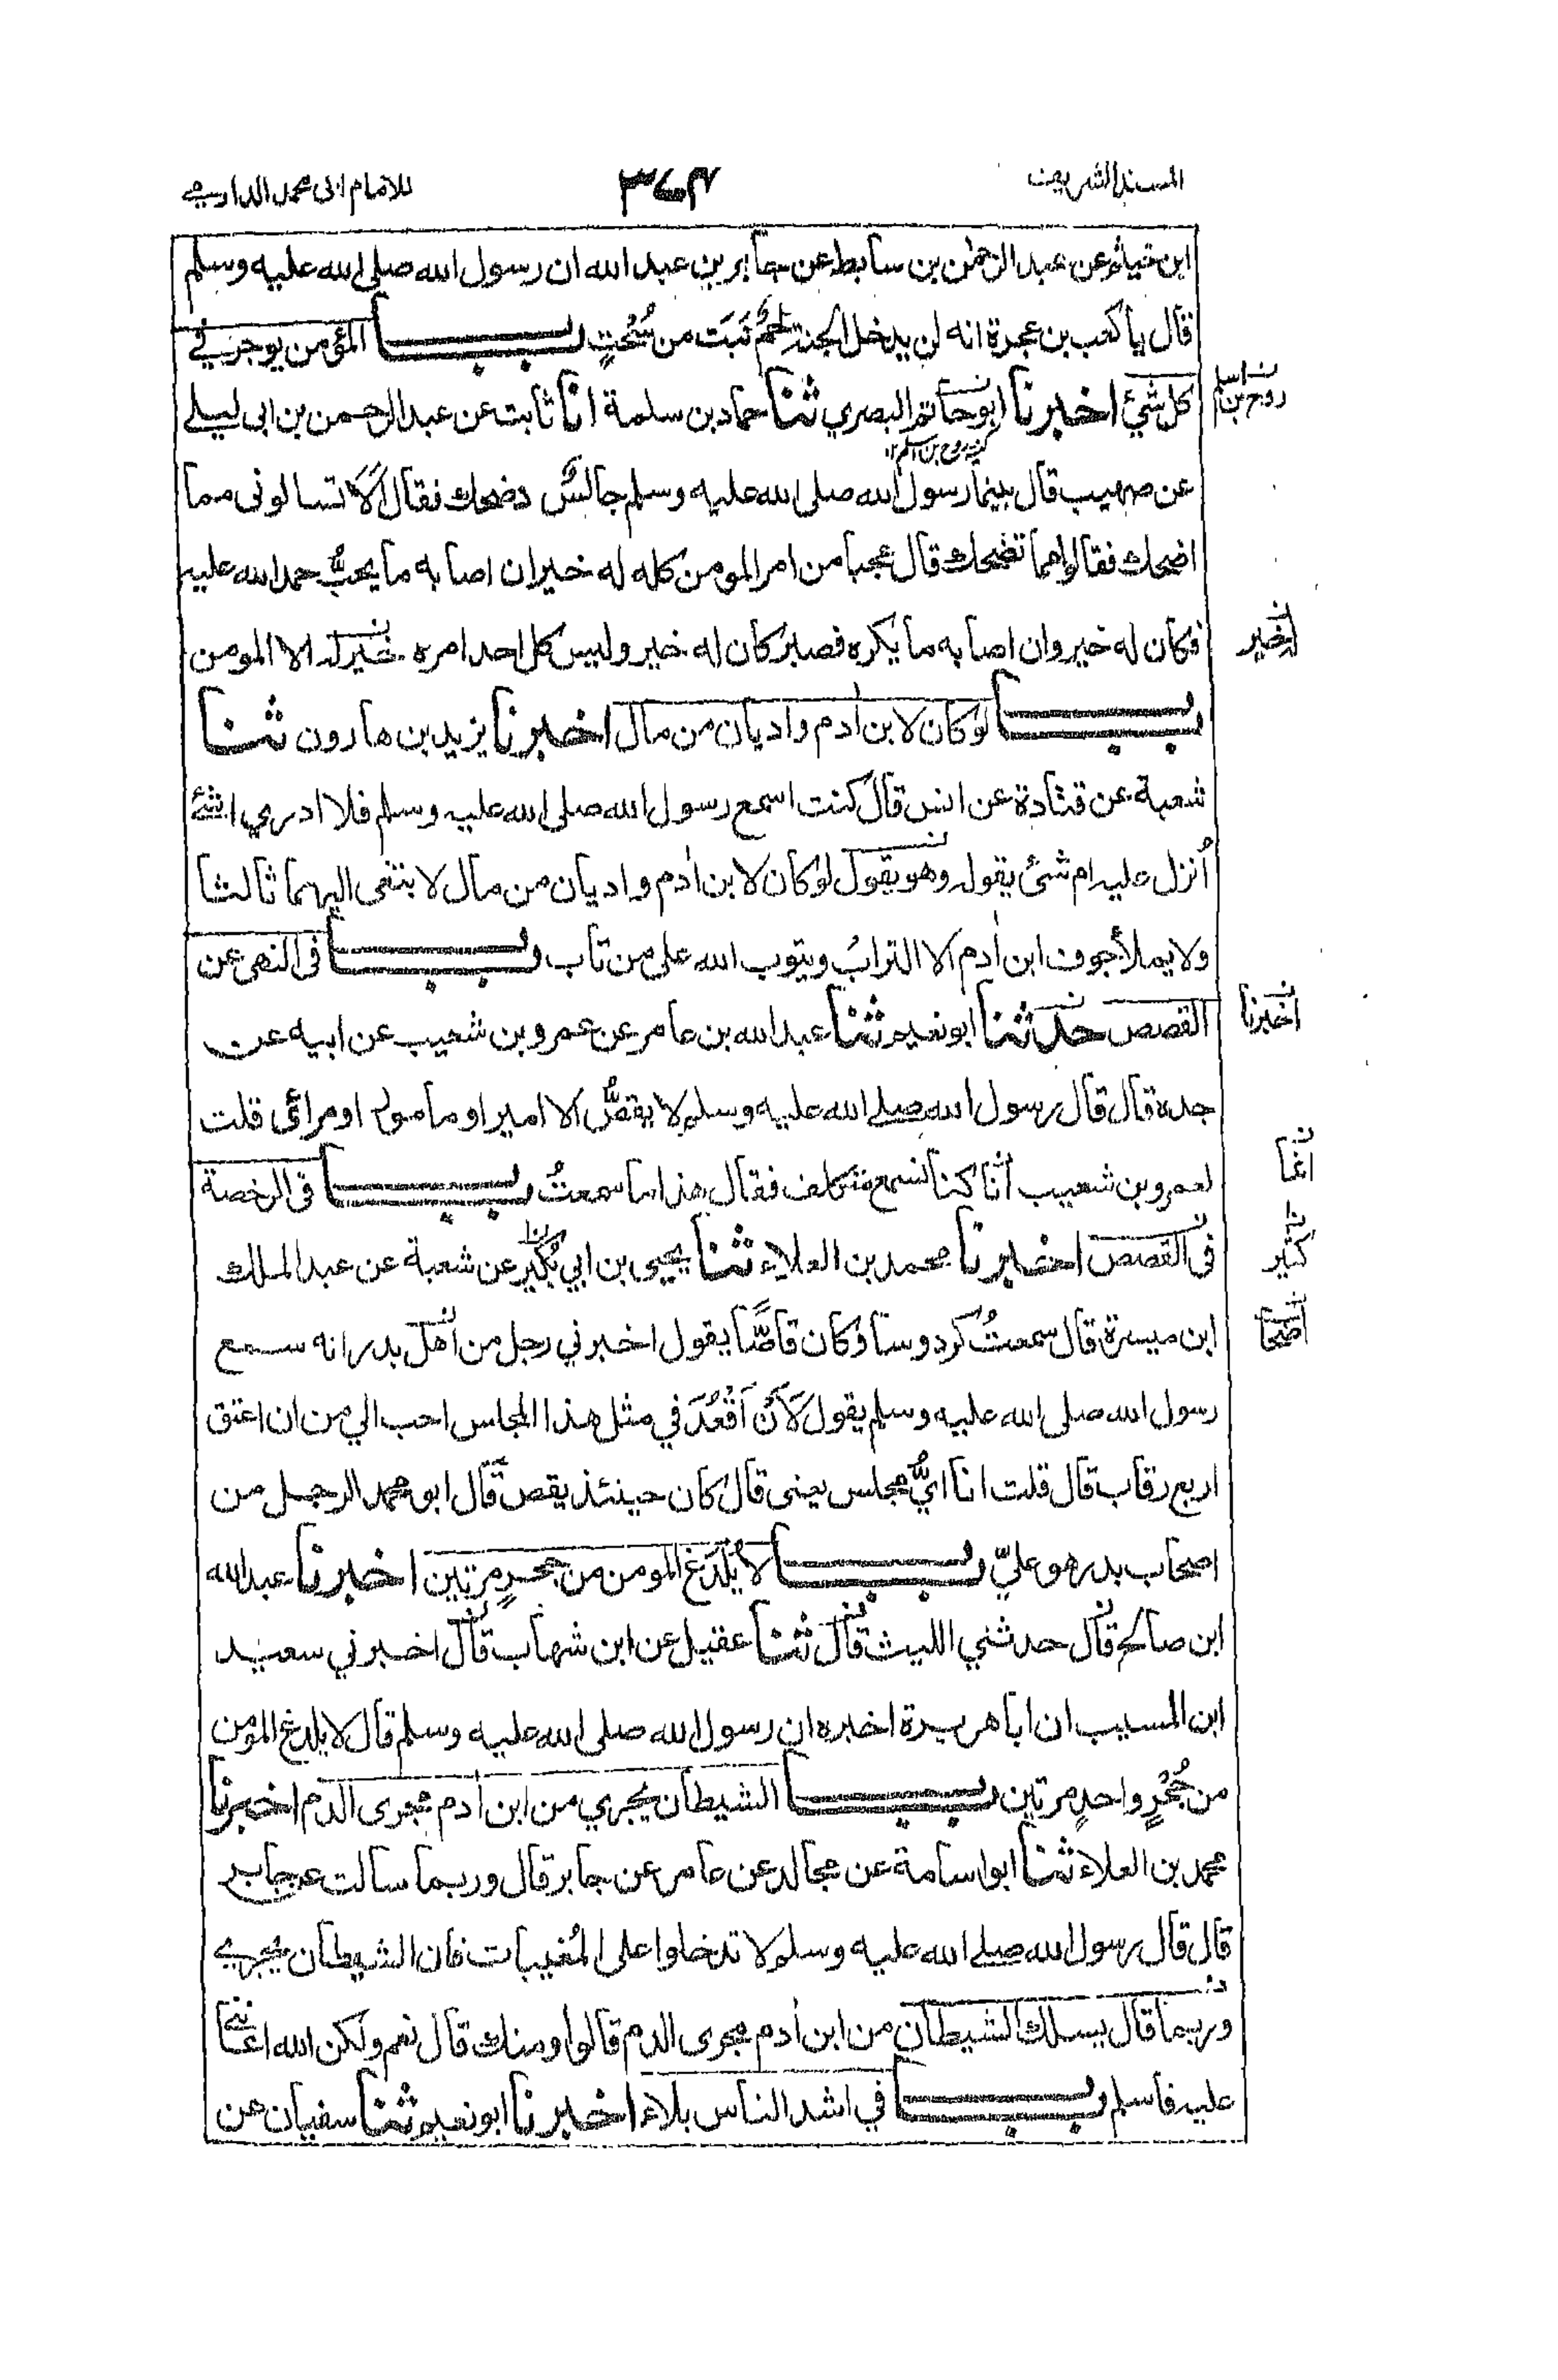 المسند الشريف
٣٦٤
للامام ابى محمد الدارمي
ابن خيثم عن عبد الرحمٰن بن سابط عن جابر بن عبد الله ان رسول الله صلى الله عليه وسلم
قال يا كعب بن عجرة انه لن يدخل الجنة لحمٌ نَبَت من سُحْتٍ بــاب المؤمن يوجر في
كل شئ اخبرنا ابو حاتم البصري ثنا حماد بن سلمة انا ثابت عن عبد الرحمن بن ابى ليلے
روح بن اسلم
كنيته روح بن اسلم ١٢
عن صهيب قال بينما رسول الله صلى الله عليه وسلم جالسٌ اذ ضحك فقال اَلَا تسالونى مما
اضحك فقالوا مما تضحك قال عجبا من امر المومن كله له خير ان اصابه ما يحبُّ حمد الله عليه
فكان له خير وان اصابه ما يكره فصبر كان له خير وليس كل احد امره خير له الا المومن
له خير
بــاب لو كان لابن اٰدم واديان من مال اخبرنا يزيد بن هارون ثنا
شعبة عن قتادة عن انس قال كنت اسمع رسول الله صلى الله عليه وسلم فلا ادري اشئ
اُنزل عليه ام شئ يقوله وهو يقول لو كان لابن اٰدم واديان من مال لابتغى اليهما ثالثا
ولا يملأ جوف ابن اٰدم الا الترابُ ويتوب الله على من تاب بــاب فى النهى عن
القصص حدثنا ابو نعيم ثنا عبد الله بن عامر عن عمرو بن شعيب عن ابيه عن
اخبرنا
جده قال قال رسول الله صلے الله عليه وسلم لا يقصُّ الا امير او مامور او مرائى قلت
لعمرو بن شعيب انا كنا نسمع متكلف فقال هذا ما سمعتُ بــاب فى الرخصة
انما
فى القصص اخبرنا محمد بن العلاء ثنا يحيى بن ابي بُكَير عن شعبة عن عبد الملك
كثير
ابن ميسرة قال سمعتُ كردوسا وكان قاصًّا يقول اخبرني رجل من اهل بدر انه سمع
اصحاب
رسول الله صلى الله عليه وسلم يقول لَاَنْ اَقْعُدَ في مثل هذا المجلس احب الي من ان اعتق
اربع رقاب قال قلت انا ايُّ مجلس يعنى قال كان حينئذ يقص قال ابو محمد الرجل من
اصحاب بدر هو عليّ بــاب لا يُلْدَغ المومن من جحرٍ مرتين اخبرنا عبد الله
ابن صالح قال حدثني الليث قال ثنا عقيل عن ابن شهاب قال اخبرني سعيد
ابن المسيب ان ابا هريرة اخبره ان رسول الله صلى الله عليه وسلم قال لا يلدغ المؤمن
من جُحْرٍ واحدٍ مرتين بــاب الشيطان يجري من ابن اٰدم مجرى الدم اخبرنا
محمد بن العلاء ثنا ابو اسامة عن مجالد عن عامر عن جابر قال وربما سالت عن جابر
قال قال رسول الله صلے الله عليه وسلم لا تدخلوا على المُغيبات فان الشيطان يجري
وربما قال يسلك الشيطان من ابن اٰدم مجرى الدم قالوا ومنك قال نعم ولكن الله اعاننى
عليه فاسلم بــاب في اشد الناس بلاء اخبرنا ابو نعيم ثنا سفيان عن